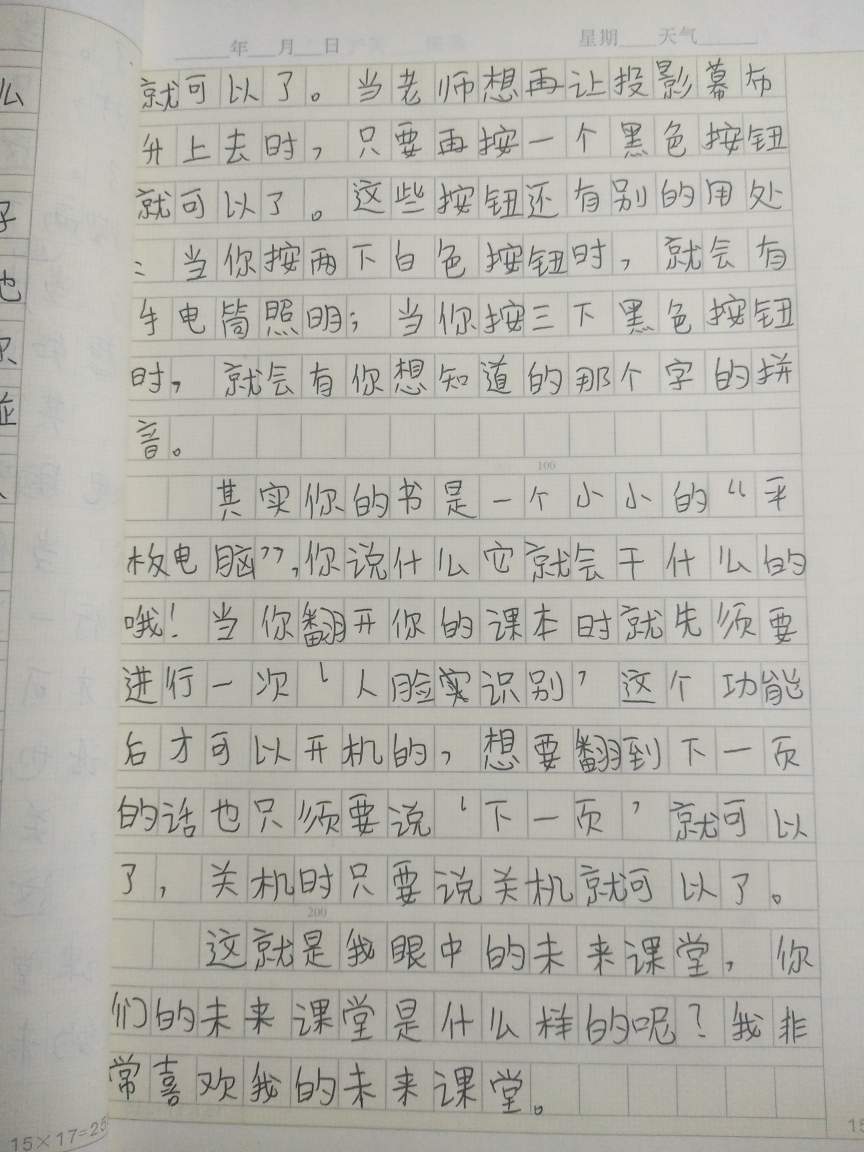 年 月 日 星期 天气
就可以了。当老师想再让投影幕布
升上去时，只要再按一个黑色按钮
就可以了。这些按钮还有别的用处
：当你按两下白色按钮时，就会有
手电筒照明；当你按三下黑色按钮
时，就会有你想知道的那个字的拼
音。
100
其实你的书是一个小小的“平
板电脑”，你说什么它就会干什么的
哦！当你翻开你的课本时就先须要
进行一次‘人脸实识别’这个功能
后才可以开机的，想要翻到下一页
的话也只须要说‘下一页’就可以
了，关机时只要说关机就可以了。
200
这就是我眼中的未来课堂，你
们的未来课堂是什么样的呢？我非
常喜欢我的未来课堂。
15×17=25
么
子
也